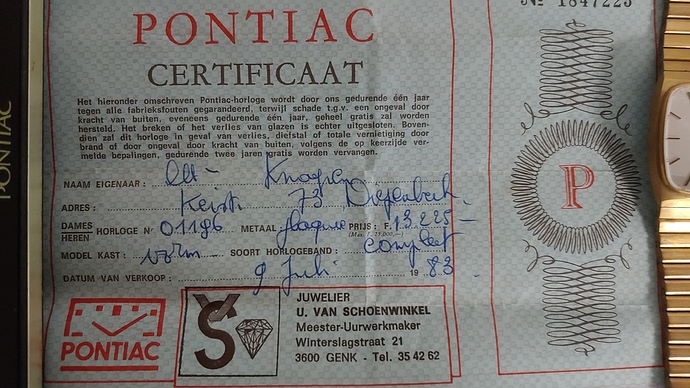 PONTIAC
CERTIFICAAT
Het hieronder omschreven Pontiac-horloge wordt door ons gedurende één jaar
tegen alle fabrieksfouten gegarandeerd, terwijl schade t.g.v. een ongeval door
kracht van buiten, eveneens gedurende één jaar, geheel gratis zal worden
hersteld. Het breken of het verlies van glazen is echter uitgesloten. Boven-
dien zal dit horloge in geval van verlies, diefstal of totale vernietiging door
brand of door ongeval door kracht van buiten, volgens de op keerzijde ver-
melde bepalingen, gedurende twee jaren gratis worden vervangen.
NAAM EIGENAAR :
ADRES : 73 Diepenbeek
DAMES
HEREN HORLOGE No 01196 METAAL plaqué PRIJS : F. 13225-
MODEL KAST : vorm SOORT HORLOGEBAND : compleet
DATUM VAN VERKOOP : 9 Juli 1983
PONTIAC
YS
JUWELIER
U. VAN SCHOENWINKEL
Meester-Uurwerkmaker
Winterslagstraat 21
3600 GENK - Tel. 35 42 62
No 1847225
P
PONTIAC